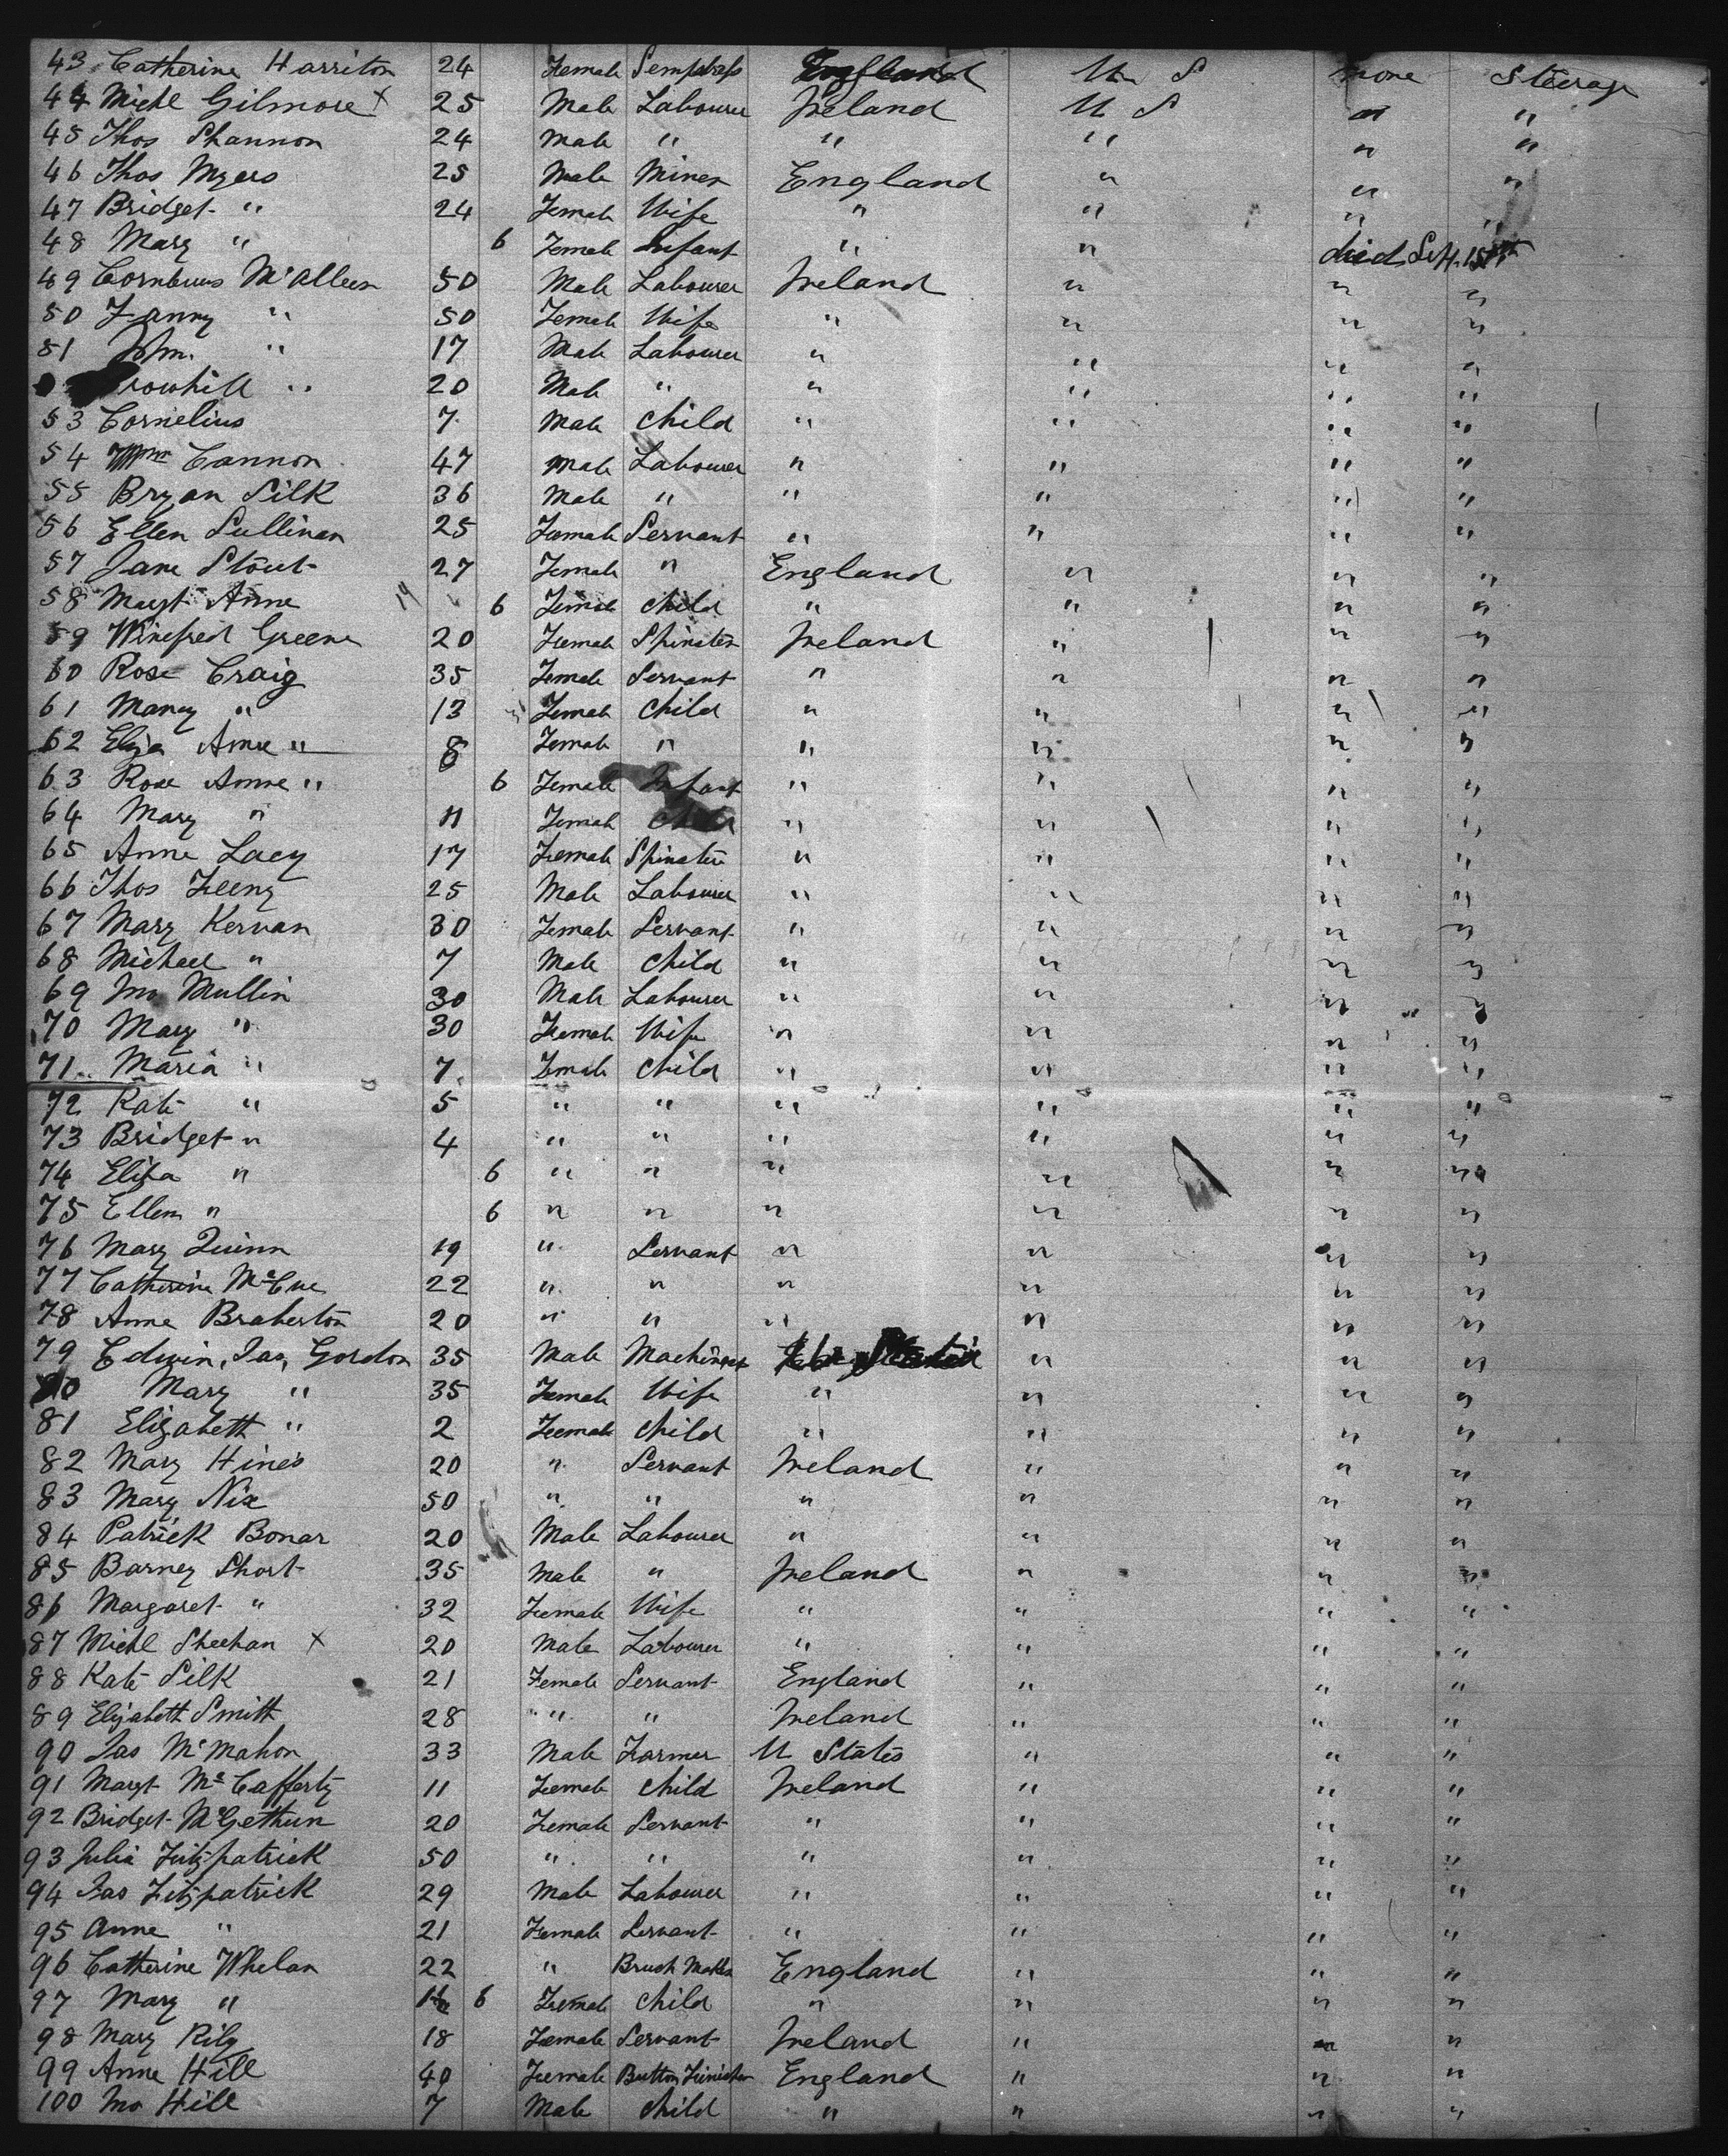 43 Catherine Harriton 24 Female Sempstress England U S none Steerage
44 Michl Gilmore x 25 Male Labourer Ireland U S " "
45 Thos Shannon 24 Male " " " " "
46 Thos Myers 25 Male Miner England " " "
47 Bridget " 24 Female Wife " " " "
48 Mary " 6 Female Infant " " died Sept. 15th
49 McAlleer 50 Male Labourer Ireland " " "
50 Fanny " 50 Female Wife " " " "
51 John " 17 Male Labourer " " " "
" 20 Male " " " " "
53 Cornelius 7 Male Child " " " "
54 Wm Cannon 47 Male Labourer " " " "
55 Bryan Silk 36 Male " " " " "
56 Ellen Sullivan 25 Female Servant " " " "
57 Jane Stout 27 Female " England " " "
58 Margt Anne 6 Female Child " " " "
59 Winefred Greene 20 Female Spinster Ireland " " "
60 Rose Craig 35 Female Servant " " " "
61 Mancy " 13 Female Child " " " "
62 Eliza Anne " 8 Female " " " " "
63 Rose Anne " 6 Female Infant " " " "
64 Mary " 11 Female Child " " " "
65 Anne Lacy 17 Female Spinster " " " "
66 Thos Feeny 25 Male Labourer " " " "
67 Mary Kervan 30 Female Servant " " " "
68 Michael " 7 Male Child " " " "
69 Jno Mullin 30 Male Labourer " " " "
70 Mary " 30 Female Wife " " " "
71 Maria " 7 Female Child " " " "
72 Kate " 5 " " " " " "
73 Bridget " 4 " " " " " "
74 Eliza " 6 " " " " " "
75 Ellen " 6 " " " " " "
76 Mary Quinn 19 " Servant " " " "
77 Catherine McCue 22 " " " " " "
78 Anne Braherton 20 " " " " " "
79 Edwin Jas Gordon 35 Male Machinist " " "
80 Mary " 35 Female Wife " " " "
81 Elizabeth " 2 Female Child " " " "
82 Mary Hines 20 " Servant Ireland " " "
83 Mary Nix 50 " " " " " "
84 Patrick Bonar 20 Male Labourer " " " "
85 Barney Short 35 Male " Ireland " " "
86 Margaret " 32 Female Wife " " " "
87 Michl Sheehan x 20 Male Labourer " " " "
88 Kate Silk 21 Female Servant England " " "
89 Elizabeth Smith 28 " " Ireland " " "
90 Jas McMahon 33 Male Farmer U States " " "
91 Margt McCafferty 11 Female Child Ireland " " "
92 Bridget McGethun 20 Female Servant " " " "
93 Julia Fitzpatrick 50 " " " " " "
94 Jas Fitzpatrick 29 Male Labourer " " " "
95 Anne " 21 Female Servant " " " "
96 Catherine Whelan 22 " Brush Maker England " " "
97 Mary " 6 Female Child " " " "
98 Mary Rily 18 Female Servant Ireland " " "
99 Anne Hill 40 Female Button Finisher England " " "
100 Jno Hill 7 Male Child " " " "